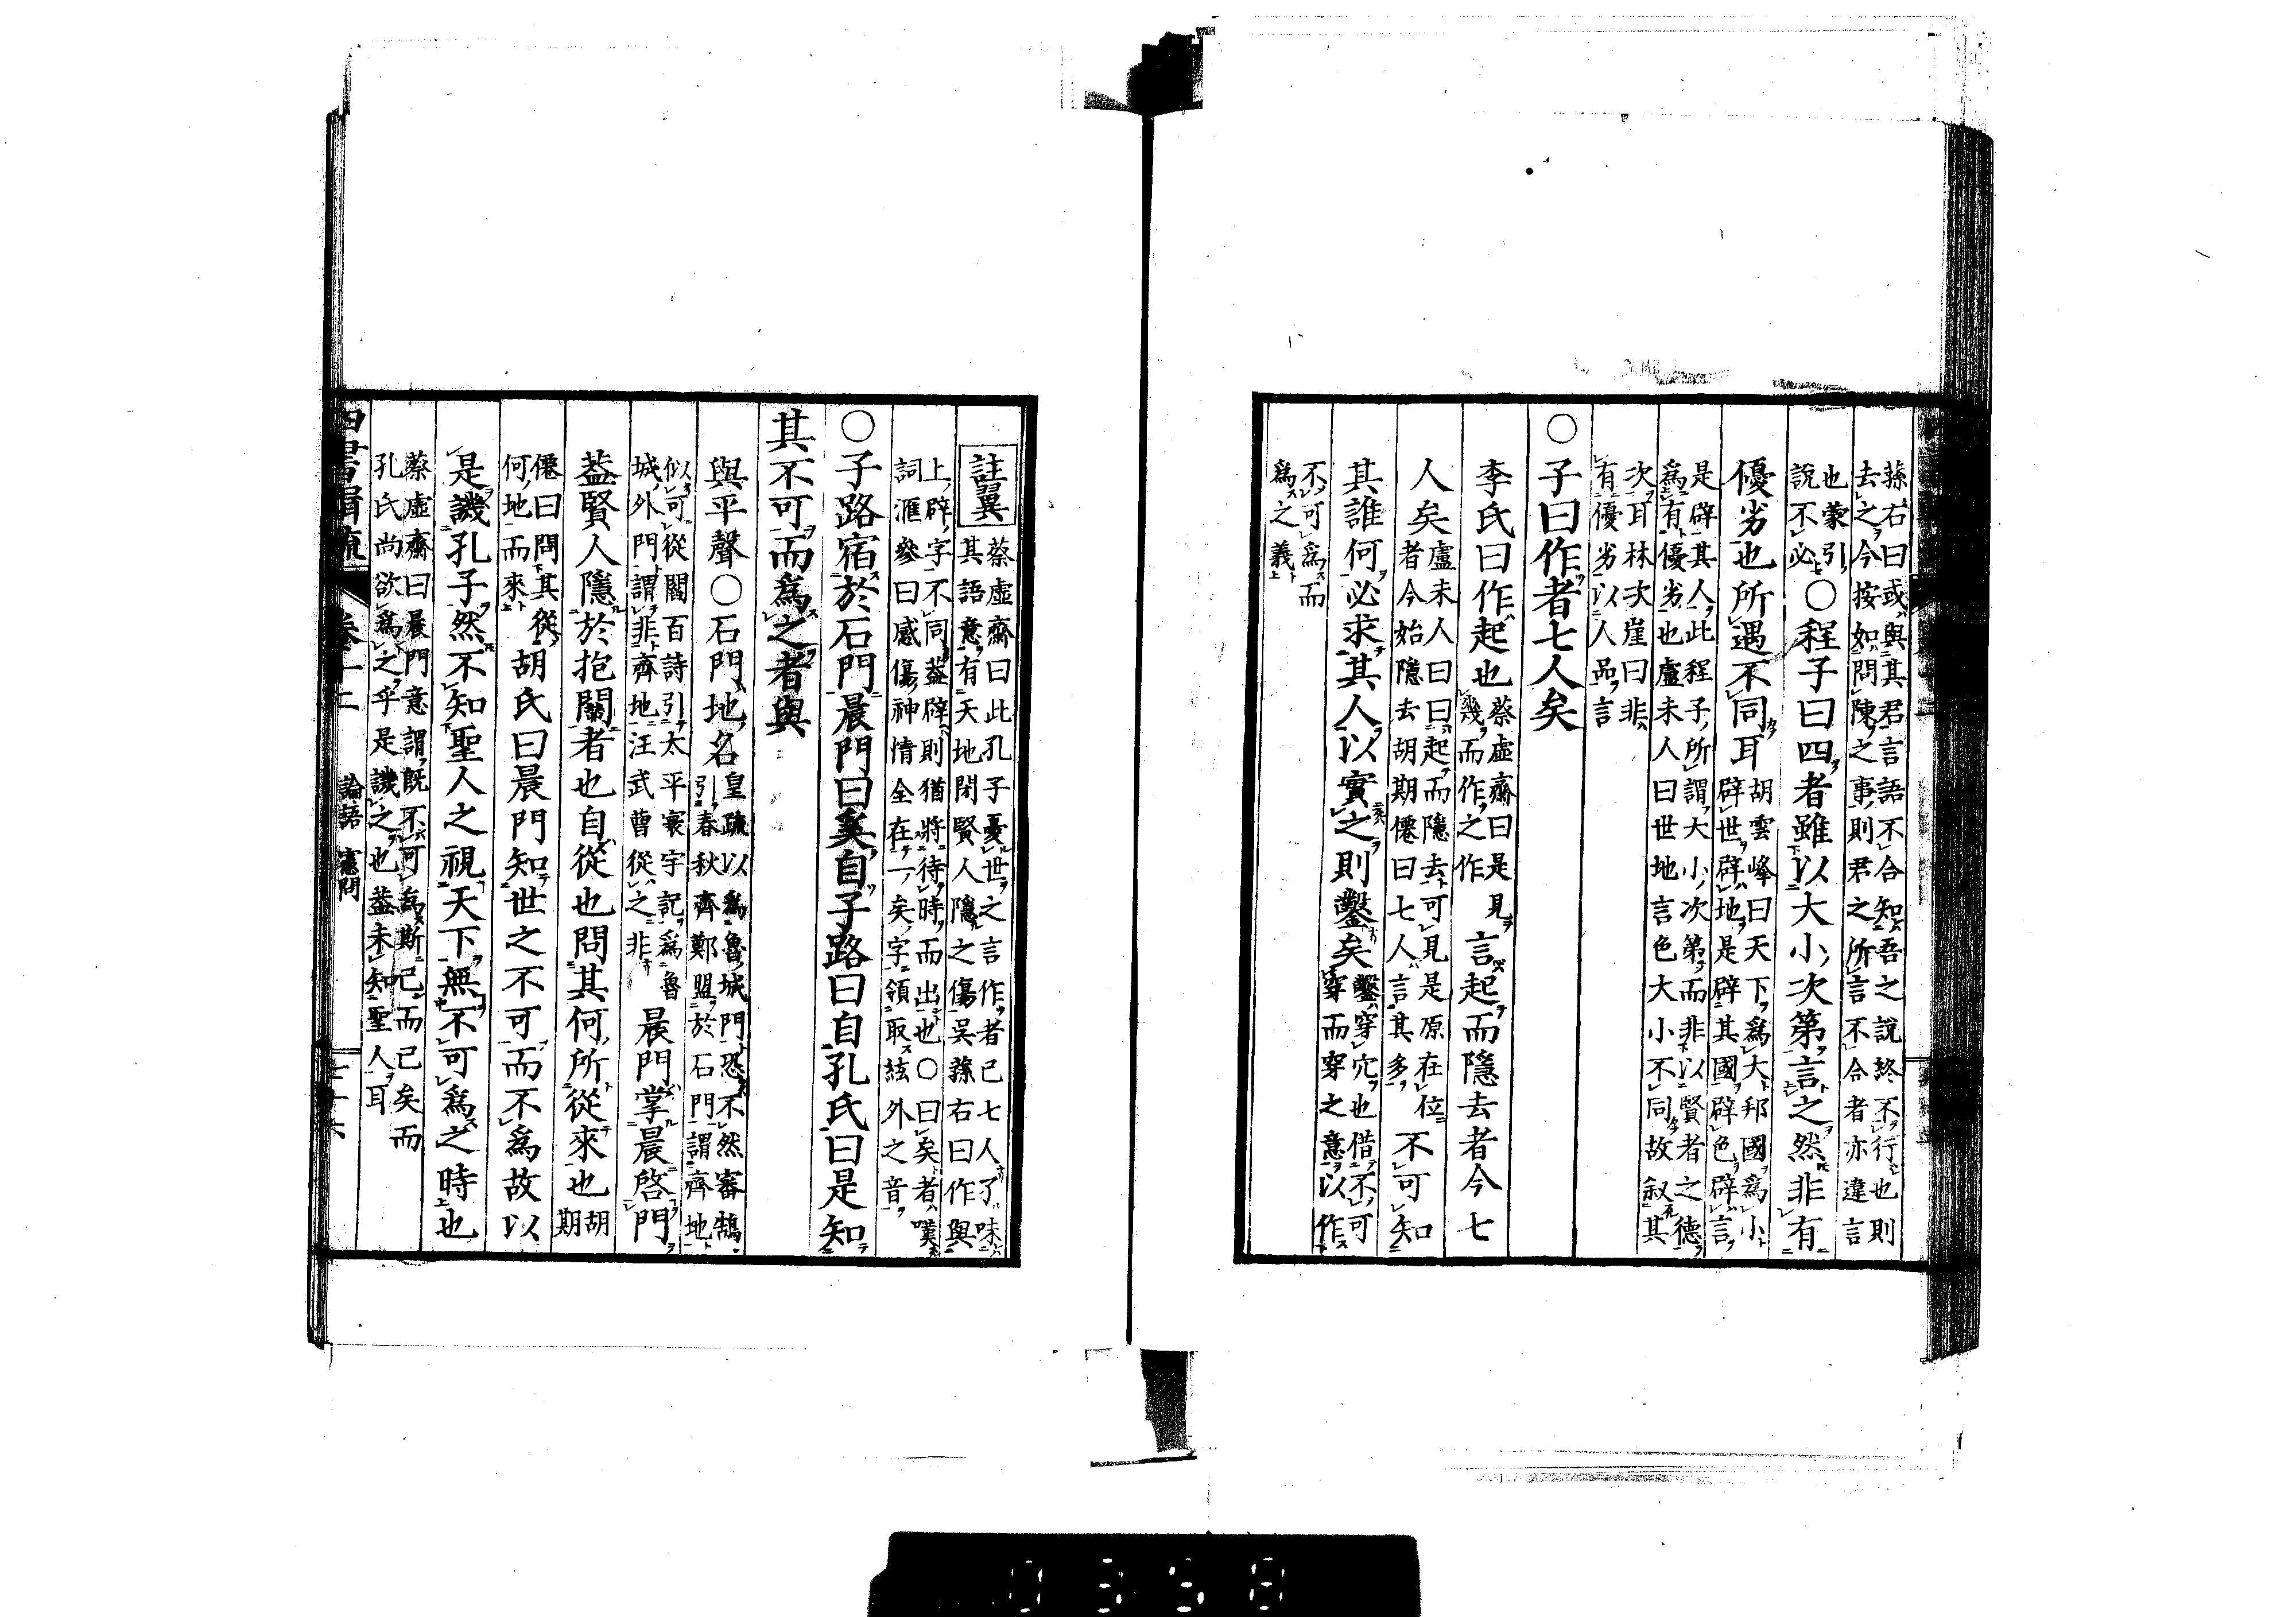 蓀右曰或與其君言語不合知吾之說終不行也則
去之今按如問陳之事則君之所言不合者亦違言
也蒙引
說不必○程子曰四者雖以大小次第言之然非有
優劣也所遇不同耳胡雲峰曰天下爲大邦國爲小
辟世辟地是辟其國辟色辟言
是辟其人此程子所謂大小次第而非以賢者之德
爲有優劣也盧未人曰世地言色大小不同故叙其
次耳林次崖曰非
有優劣以人品言
○子曰作者七人矣
李氏曰作起也蔡虛齋曰是見
幾而作之作言起而隱去者今七
人矣盧未人曰曰起而隱去可見是原在位
者今始隱去胡期僊曰七人言其多不可知
其誰何必求其人以實之則鑿矣鑿穿穴也借不可
穿而穿之意以作
不可爲而
爲之義
註翼蔡虛齋曰此孔子憂世之言作者已七人了味
其語意有天地閉賢人隱之傷吳蓀右曰作與
上辟字不同蓋辟則猶將待時而出也○曰矣者嘆
詞滙參曰感傷神情全在一矣字領取絃外之音
○子路宿於石門晨門曰奚自子路曰自孔氏曰是知
其不可而爲之者與
與平聲○石門地名皇疏以爲魯城門恐不然審鵠
引春秋齊鄭盟於石門謂齊地
似可從閻百詩引太平寰宇記爲魯
城外門謂非齊地汪武曹從之非晨門掌晨啓門
蓋賢人隱於抱關者也自從也問其何所從來也胡期
僊曰問其從
何地而來胡氏曰晨門知世之不可而不爲故以
是譏孔子然不知聖人之視天下無不可爲之時也
蔡虛齋曰晨門意謂既不可爲斯已而已矣而
孔氏尚欲爲之乎是譏之也蓋未知聖人耳
四書㨗疏 卷十二 論語 憲問 七十六